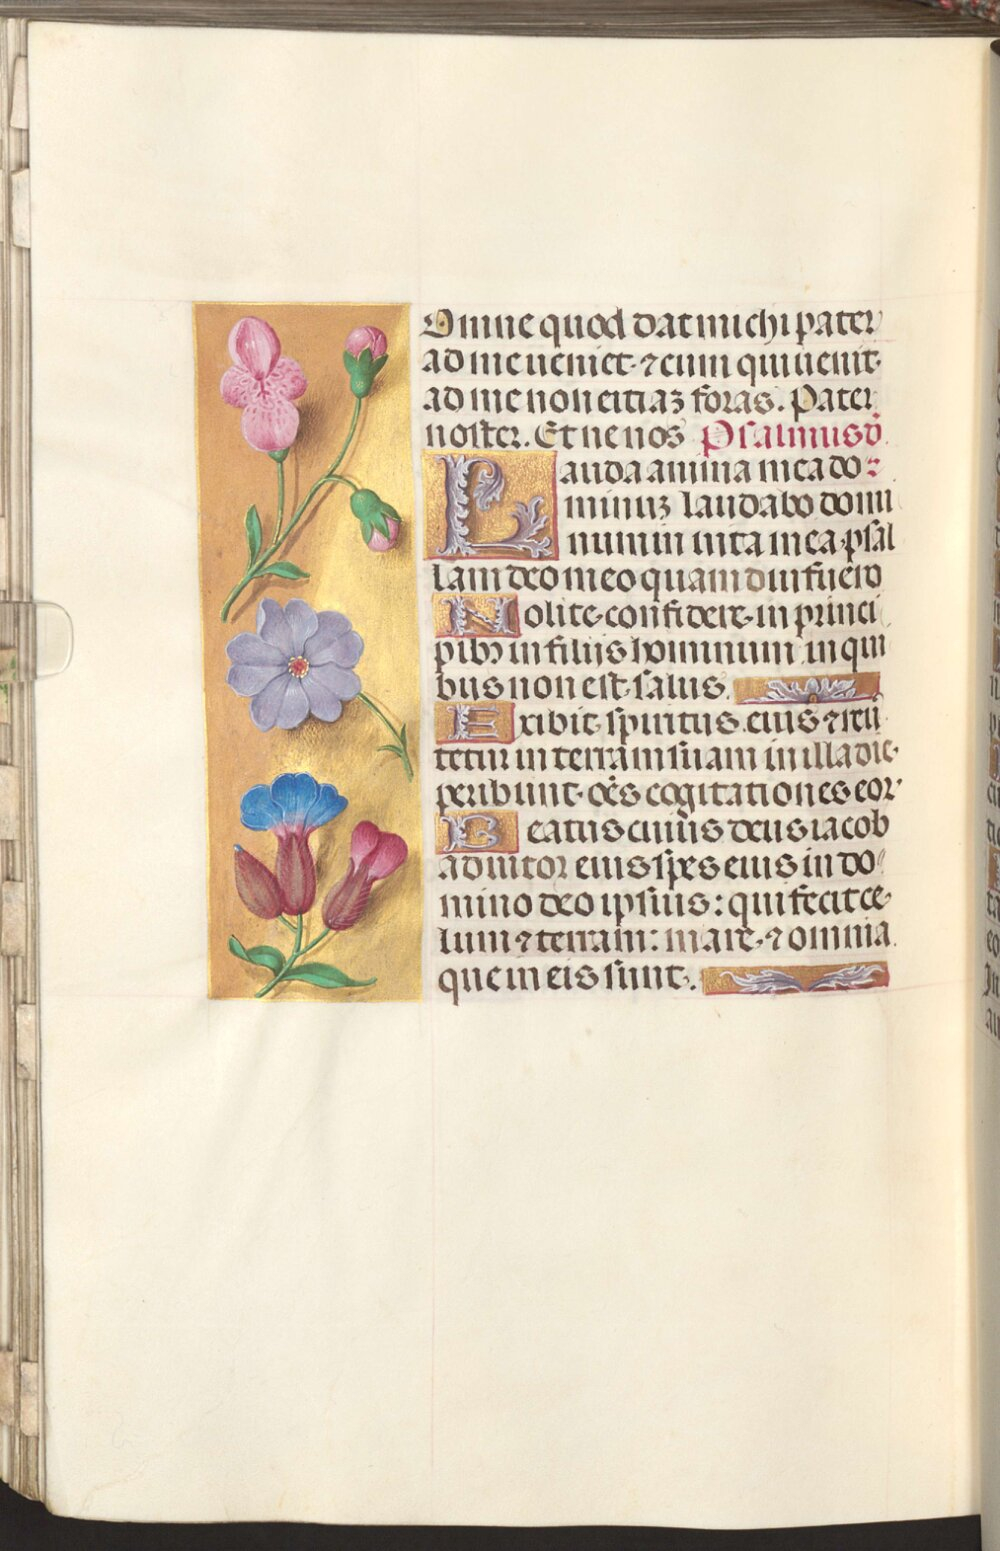 Omne quod dat michi pater
ad me veniet ⁊ eum qui uenit
ad me non eitiaꝫ foras. Pater
noster. Et ne nos Psalmus dd̄
Lauda anima mea do⁊
minuꝫ laudabo domi
num in uita mea psal
lam deo meo quam diu fuero
Nolite confidere in princi
pibꝫ in filiis hominum in qui
bus non est salus.
Exibit spiritus eius ⁊ reū
tetur in terram suam in illa die
peribunt oēs cogitationes eorʼ
Beatus cuius deus iacob
adiutor eius spes eius in do
mino deo ipsius: qui fecit ce
lum ⁊ terram: mare ⁊ omnia
que in eis sunt.